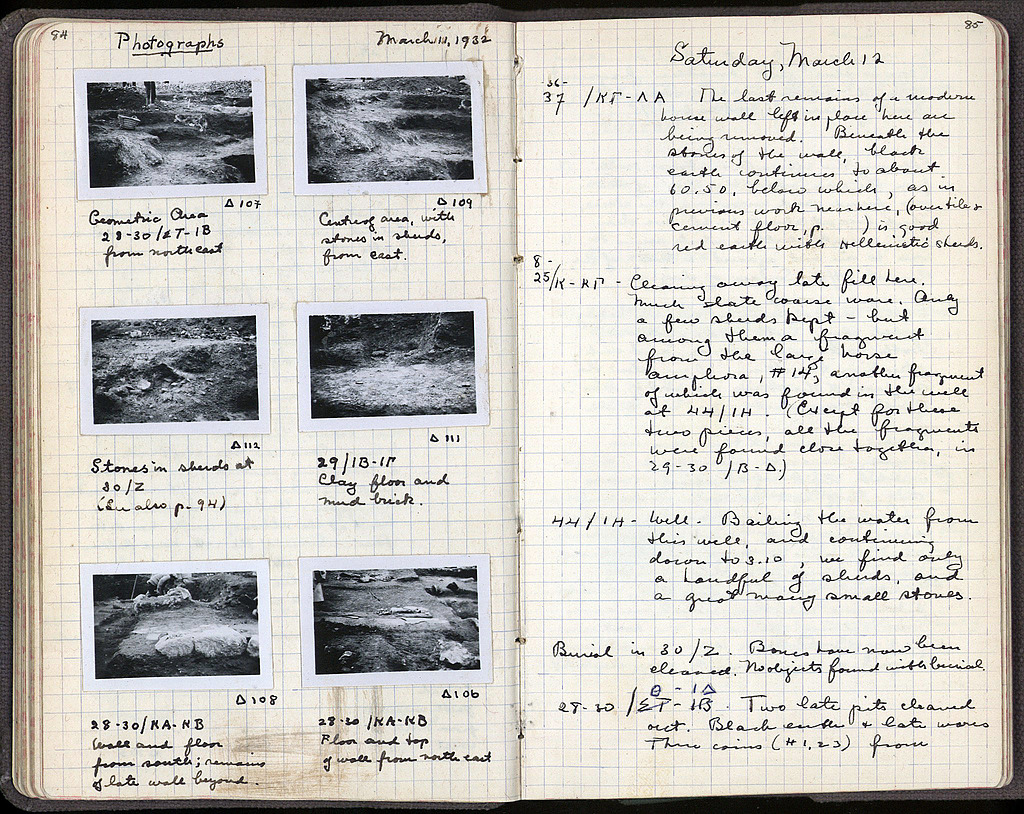 84
Photographs
March 11, 1932
Δ 107
Geometric Area
28-30/ΣΤ-ΙΒ
from northeast
Δ 109
Centre of area, with
stones in sherds,
from east.
Δ 112
Stones in sherds at
30/Z
(See also p. 94)
Δ 111
29/ΙΒ-ΙΓ
Clay floor and
mud brick.
Δ 108
28-30/ΚΑ-ΚΒ
Wall and floor
from south; remains
of late wall beyond.
Δ 106
28-30/ΚΑ-ΚΒ
Floor and top
of wall from north east
85
Saturday, March 12
36-
37 /ΚΓ-ΛΑ The last remains of a modern
house wall left in place here are
being removed. Beneath the
stones of the wall, black
earth continues to about
60.50, below which, as in
previous work near here, (over tile &
cement floor, p. ) is good
red earth with Hellenistic sherds.
8-
25/Κ-ΚΓ - Clearing away late fill here.
Much late coarse ware. Only
a few sherds kept - but
among them a fragment
from the large horse
amphora, #14, another fragment
of which was found in the well
at 44/ΙΗ. (Except for these
two pieces, all the fragments
were found close together, in
29-30/Β-Δ.)
44/ΙΗ - Well. Bailing the water from
this well, and continuing
down to 3.10, we find only
a handful of sherds, and
a great many small stones.
Burial in 30/Z. Bones have now been
cleaned. No objects found with burial.
Θ - ΙΔ
28-30/ΣΤ-ΙΒ. Two late pits cleaned
out. Black earth & late wares
Three coins (#1, 2, 3) from